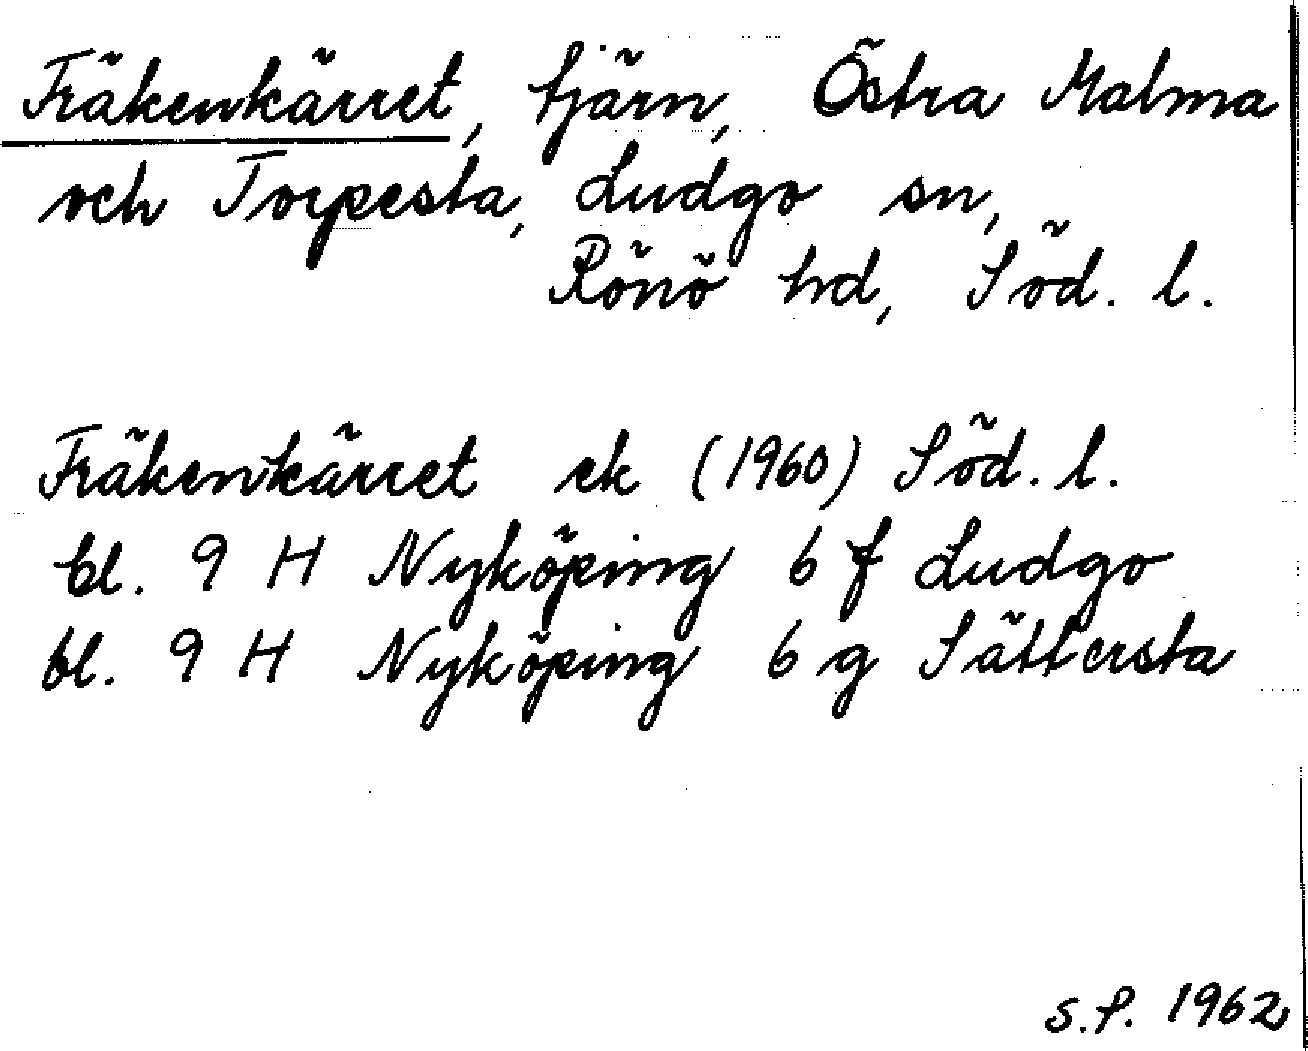 Fräkenkärret, tjärn, Östra Malma
och Torpesta, Ludgo sn,
Rönö hd, Söd. l.
Fräkenkärret ek (1960) Söd. l.
bl. 9 H Nyköping 6 f Ludgo
bl. 9 H Nyköping 6 g Sättersta
S.P. 1962